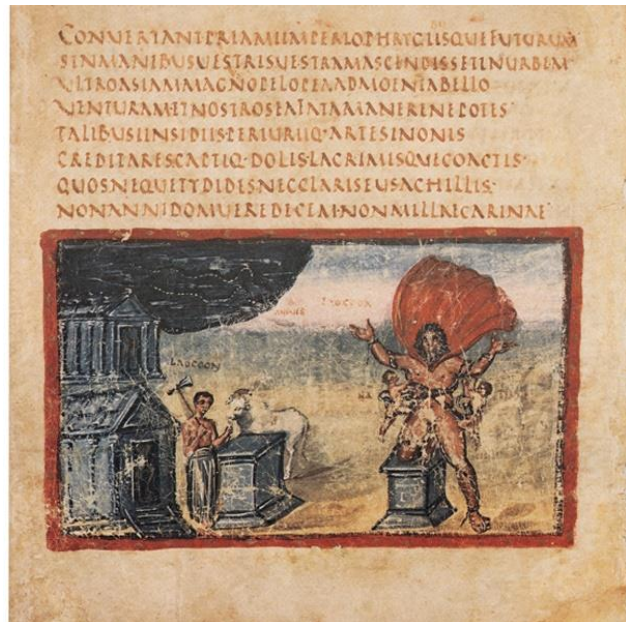 CONVERTANTPRIAMIIMPERIOPHRYGIISQUEFUTURUM
SINMANIBUSUESTRISUESTRAMASCENDISSETINURBEM
ULTROASIAMMAGNOPELOPEAADMOENIABELLO
VENTURAMETNOSTROSEAFATAMANERENEPOTES
TALIBUSINSIDIIS·PERIURIQ·ARTESINONIS
CREDITARESCAPTIQ·DOLIS·LACRIMISQUECOACTIS·
QUOSNEQUETYDIDESNECCLARISEUSACHILLIS·
NONANNIDOMUEREDECEM·NONMILLECARINAE
LAOCOON
LAOCOON